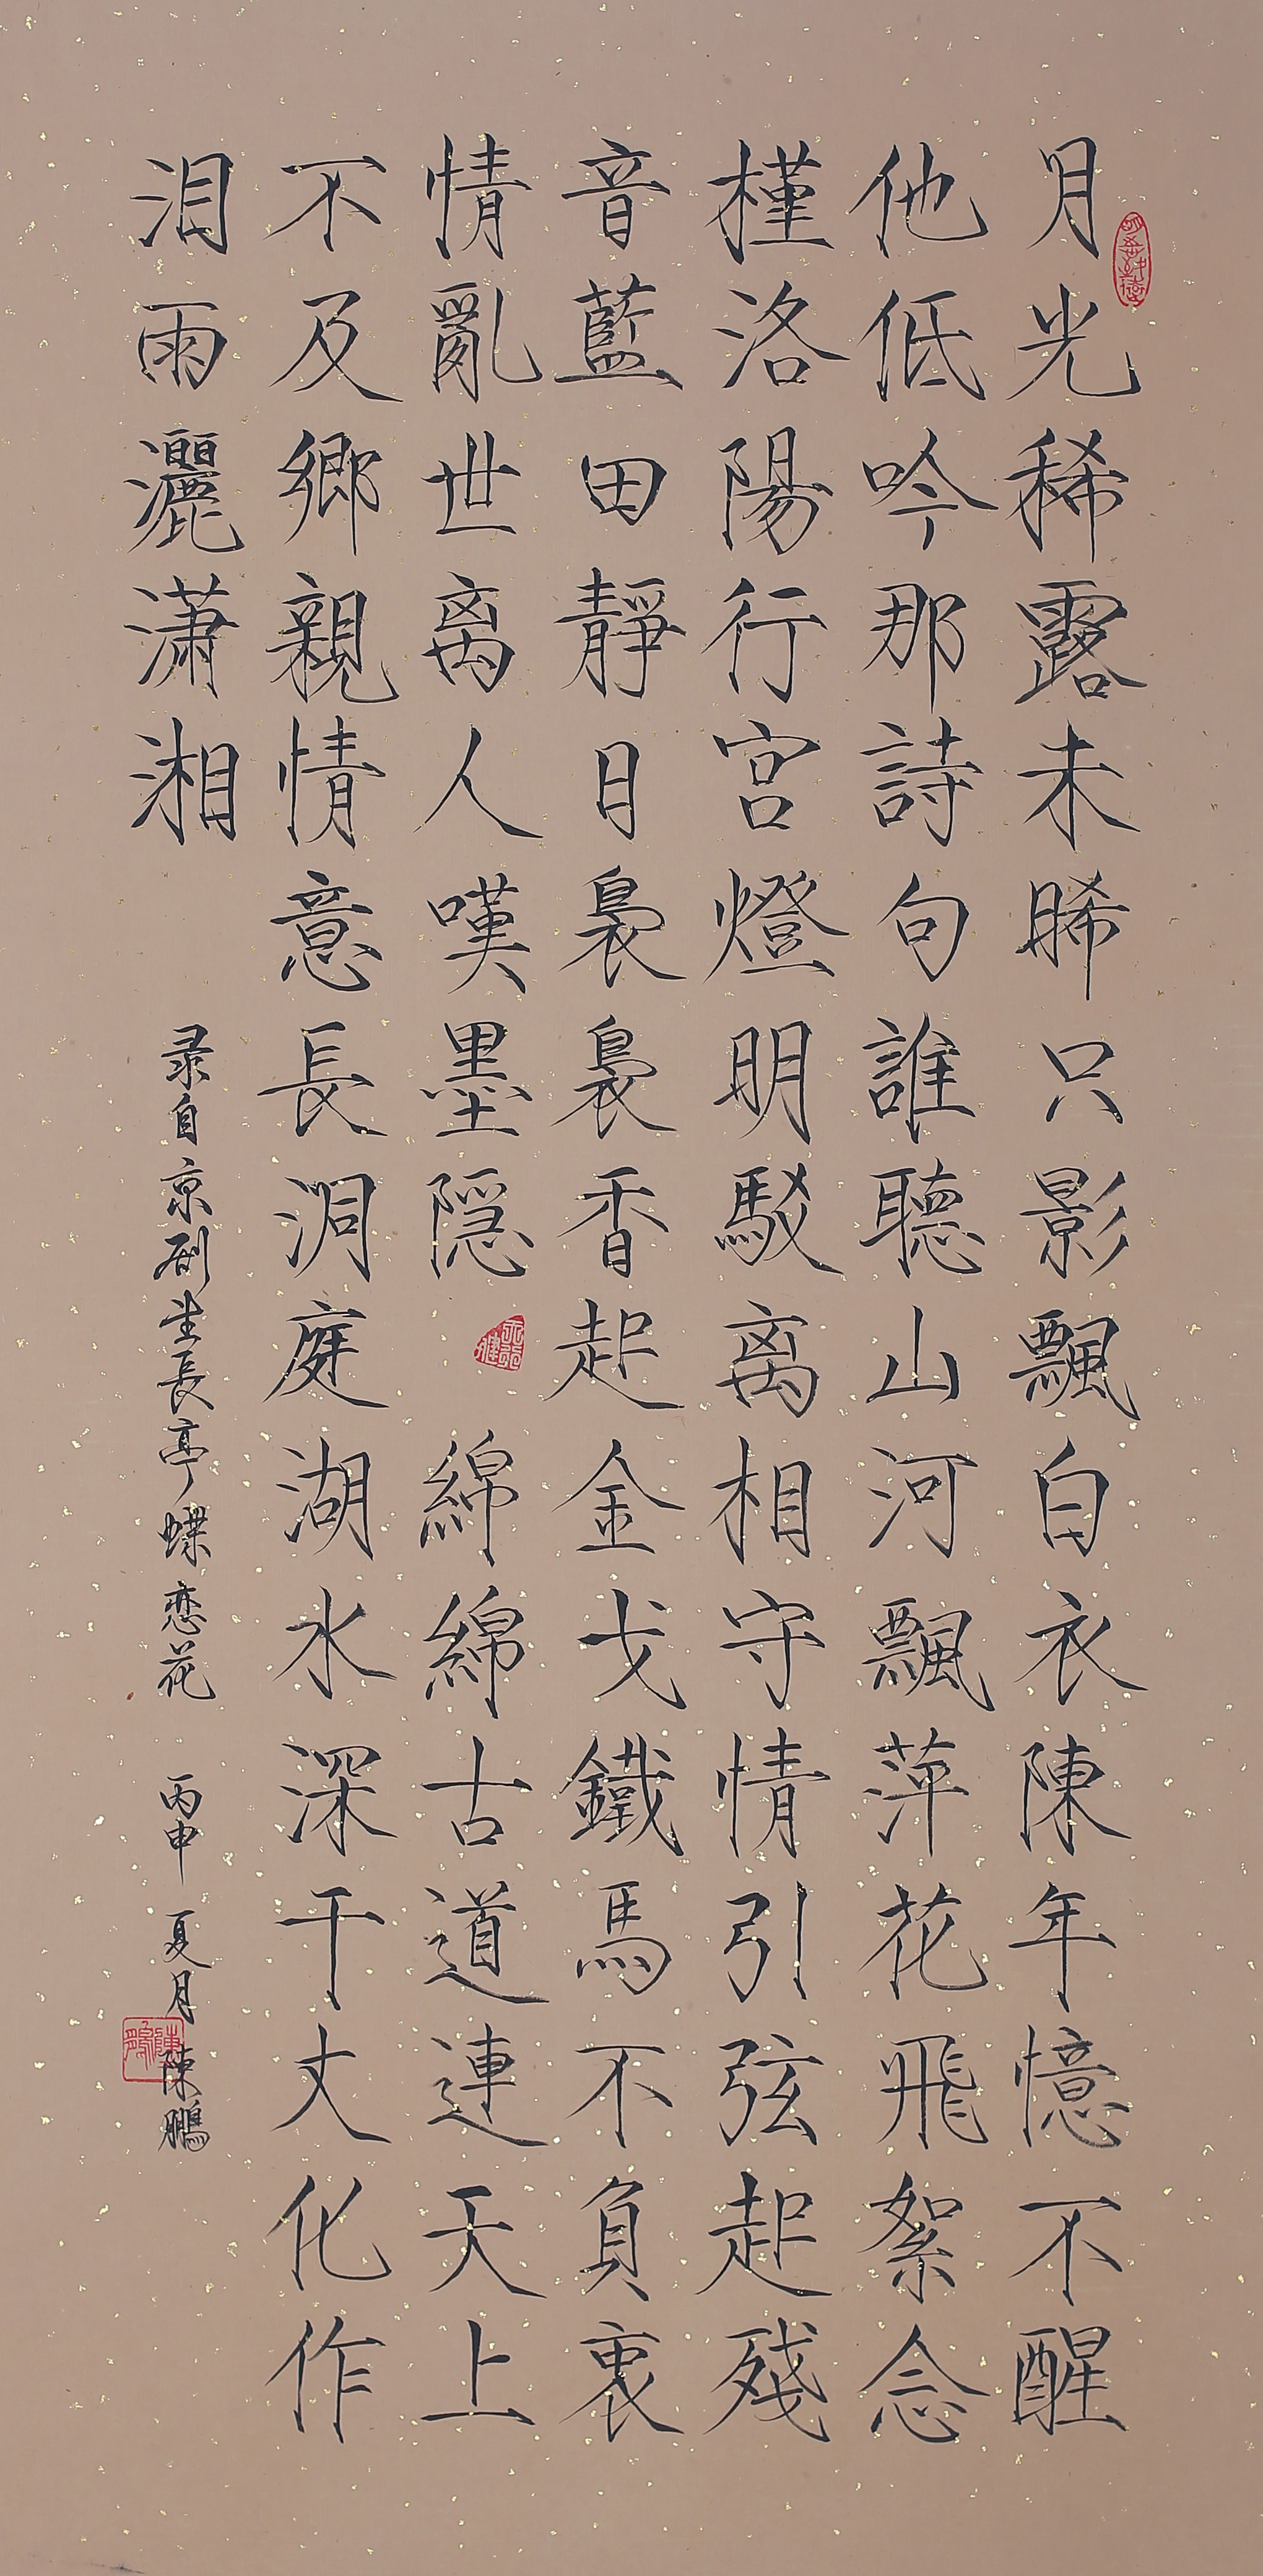 月光稀露未晞只影飄白衣陳年憶不醒
他低吟那詩句誰聽山河飄萍花飛絮念
槿洛陽行宮燈明駁离相守情引弦起殘
音藍田靜日裊裊香起金戈鐵馬不負衷
情亂世离人嘆墨隠綿綿古道連天上
不及鄉親情意長洞庭湖水深千丈化作
泪雨灑潇湘
录自京剧生長亭蝶恋花 丙申夏月陳鵬
陳鵬